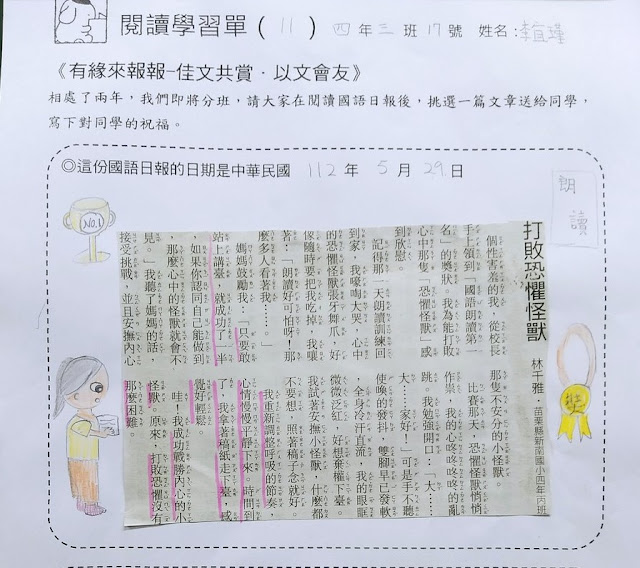 閱讀學習單(11)四年三班17號 姓名:李宜瑾
《有緣來報報-佳文共賞．以文會友》
相處了兩年，我們即將分班，請大家在閱讀國語日報後，挑選一篇文章送給同學，
寫下對同學的祝福。
◎這份國語日報的日期是中華民國 112 年 5 月 29 日
NO.1
朗讀
打敗恐懼怪獸
林千雅．苗栗縣新南國小四年丙班
個性害羞的我，從校長
手上領到「國語朗讀第一
名」的獎狀。我為能打敗
心中那隻「恐懼怪獸」感
到欣慰。
記得那一天朗讀訓練回
到家，我嚎啕大哭，心中
的恐懼怪獸張牙舞爪，好
像隨時要把我吃掉，我嚷
著：「朗讀好可怕呀！那
麼多人看著我……。」
媽媽鼓勵我：「只要敢
站上講臺，就成功了一半
，如果你認同自己能做到
，那麼心中的怪獸就會不
見。」我聽了媽媽的話，
接受挑戰，並且安撫內心
那隻不安分的小怪獸。
比賽那天，恐懼怪獸悄悄
作祟，我的心咚咚咚咚的亂
跳。我勉強開口：「大……
大……家好！」可是手不聽
使喚的發抖，雙腳早已發軟
，全身冷汗直流，我的眼眶
微微泛紅，好想棄權下臺。
我試著安撫小怪獸，什麼都
不要想，照著稿子念就好。
我重新調整呼吸的節奏，
心情慢慢平靜下來。時間到
了，我拿著稿紙走下臺，感
覺好輕鬆。
哇！我成功戰勝內心的小
怪獸。原來，打敗恐懼沒有
那麼困難。
獎